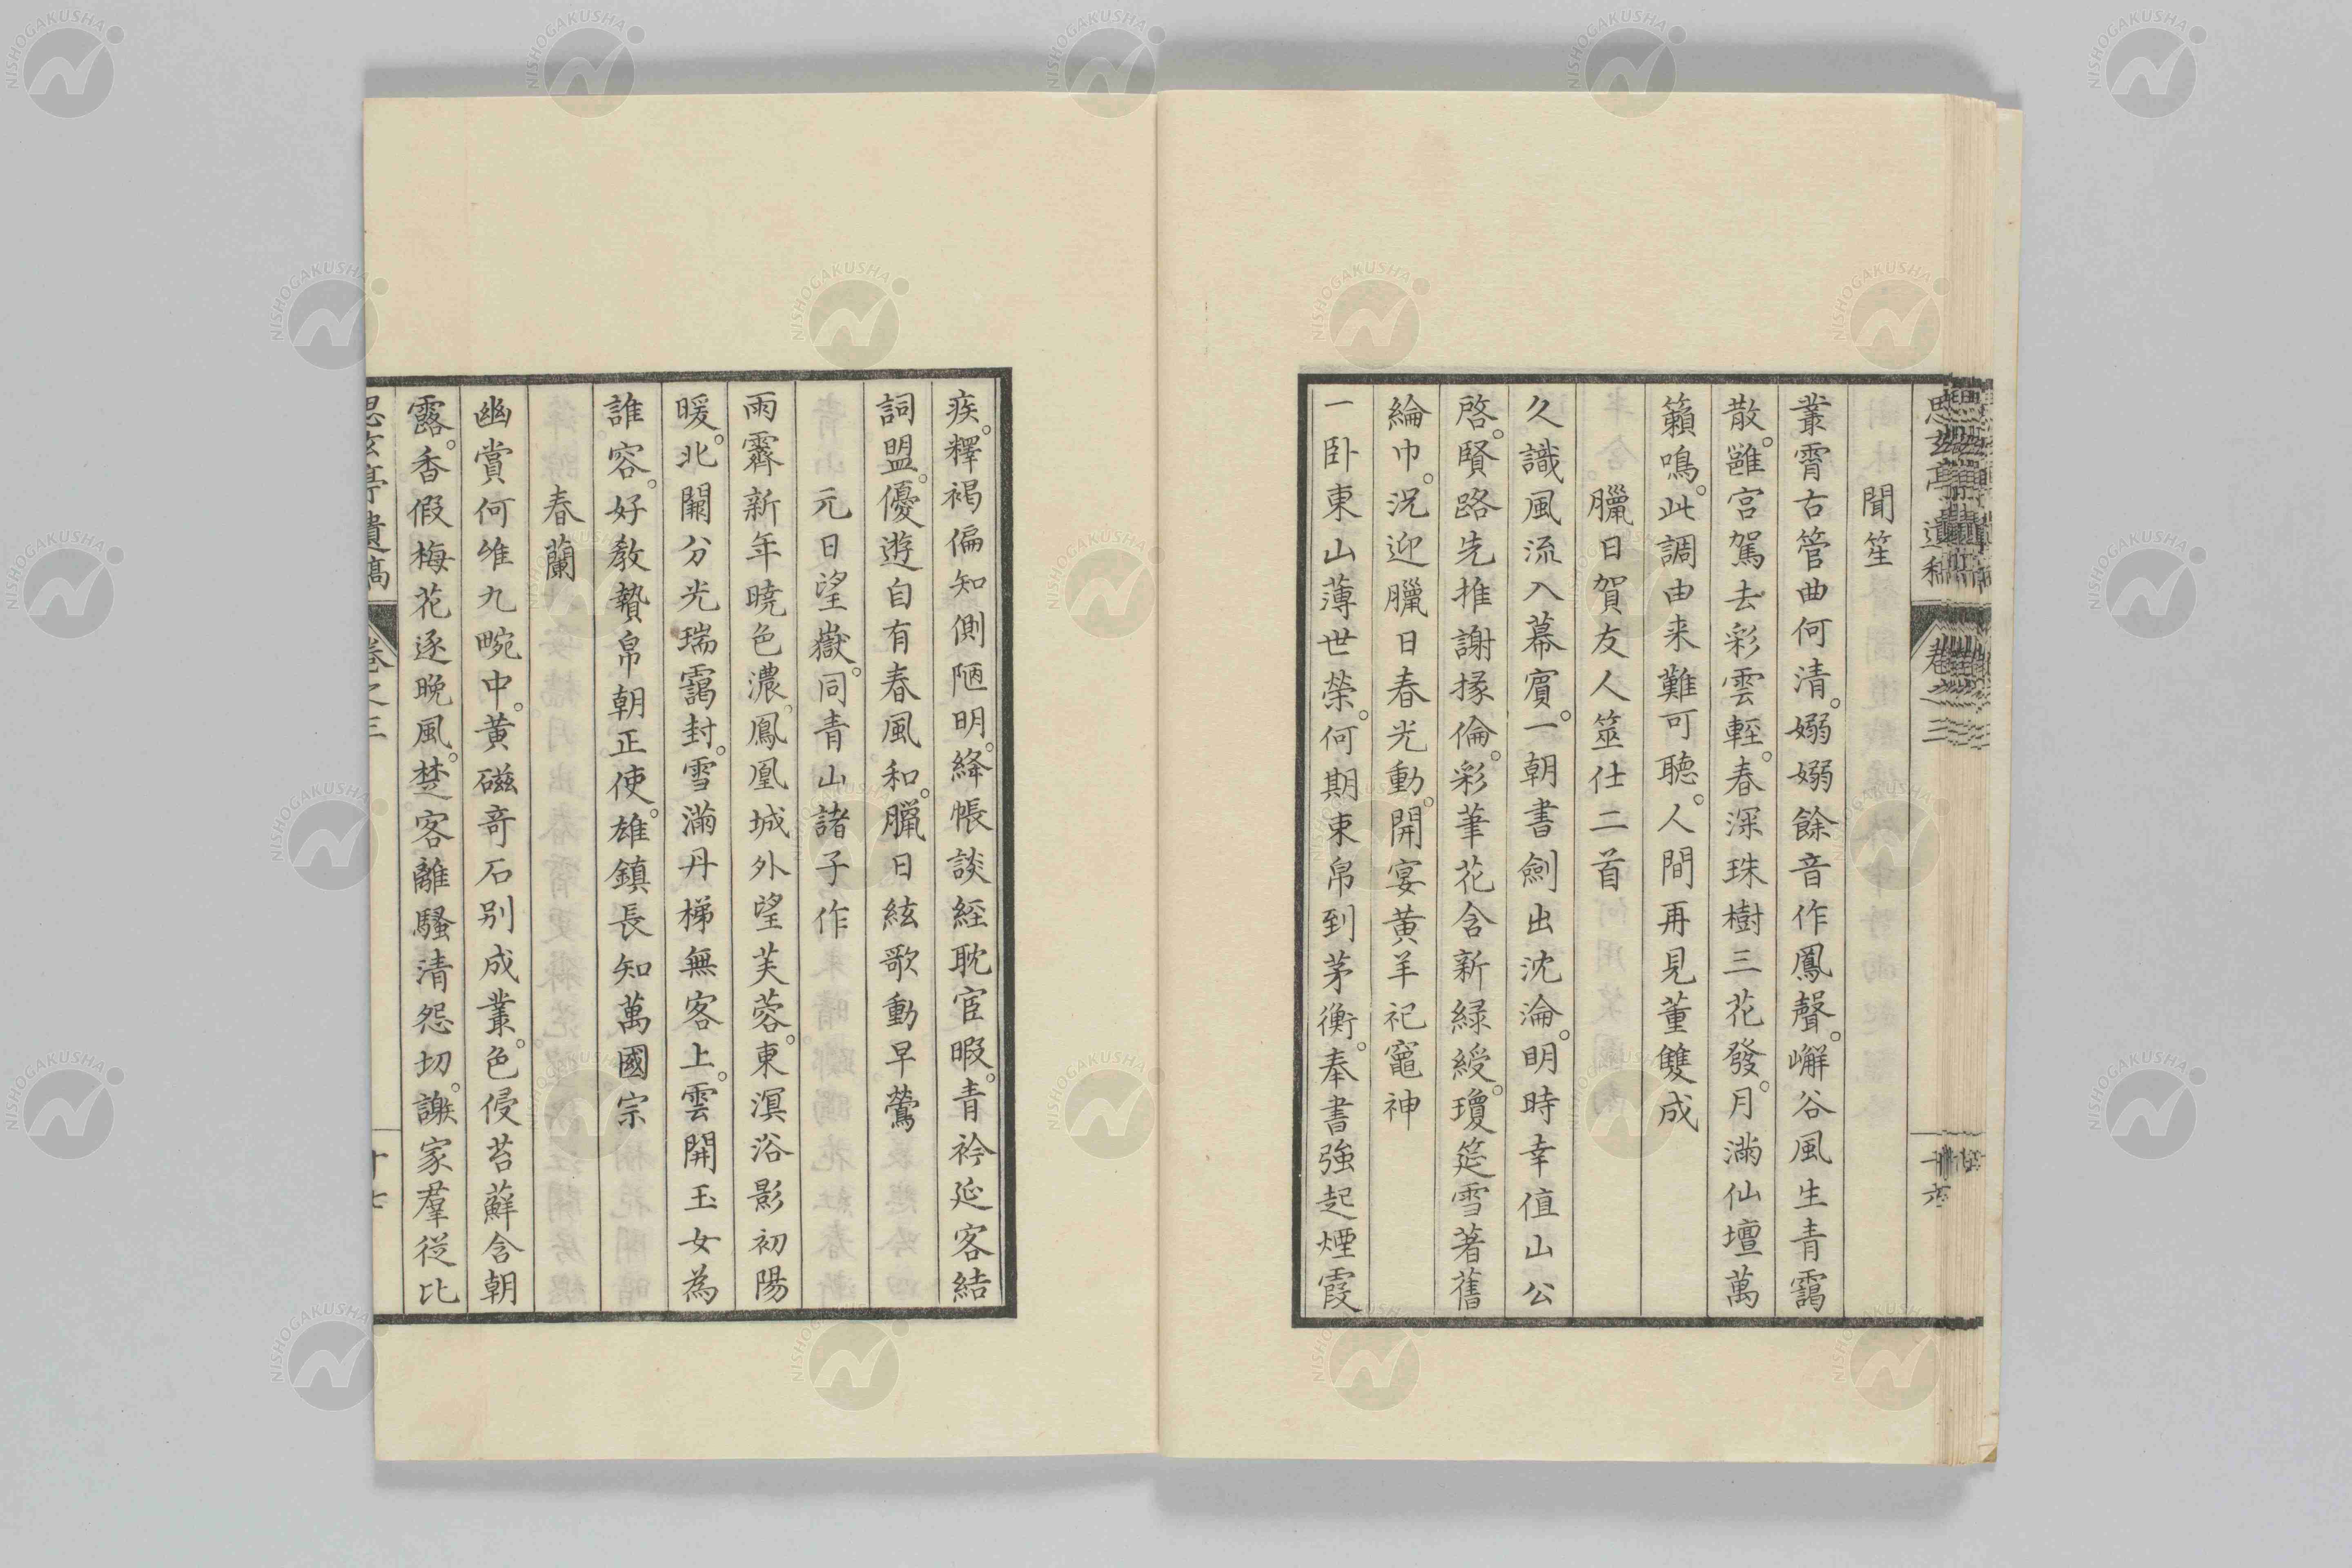 思玄亭遺稿 卷之三 十六
聞笙
叢霄古管曲何清。嫋嫋餘音作鳳聲。嶰谷風生青靄
散。雝宮駕去彩雲輕。春深珠樹三花發。月滿仙壇萬
籟鳴。此調由来難可聴。人間再見董雙成
臘日賀友人筮仕二首
久識風流入幕賓。一朝書劍出沈淪。明時幸值山公
啓。賢路先推謝掾倫。彩筆花含新緑綬。瓊筵雪著舊
綸巾。況迎臘日春光動。開宴黄羊祀竈神
一卧東山薄世榮。何期束帛到茅衡。奉書強起煙霞
疾。釋褐偏知側陋明。絳帳談経耽宦暇。青衿延客結
詞盟。優遊自有春風和。臘日絃歌動早鶯
元日望嶽。同青山諸子作
雨霽新年暁色濃。鳳凰城外望芙蓉。東溟浴影初陽
暖。北闕分光瑞靄封。雪滿丹梯無客上。雲開玉女為
誰容。好教贄帛朝正使。雄鎮長知萬國宗
春蘭
幽賞何維九畹中。黄磁竒石別成叢。色侵苔蘚含朝
露。香假梅花逐晚風。楚客離騷清怨切。謝家羣従比
思玄亭遺稿 卷之三 十七
NISHOGAKUSHA